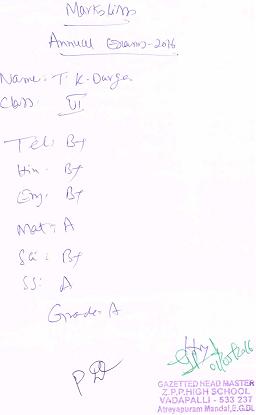 Marks list
Annual Exams-2016
Name: T. K. Durga
Class: VI
Tel: B+
Hin: B+
Eng: B+
Mat: A
Sci: B+
SS: A
Grade: A
GAZETTED HEAD MASTER
Z.P.P.HIGH SCHOOL
VADAPALLI - 533 237
Atreyapuram Mandal,E.G.Dt.